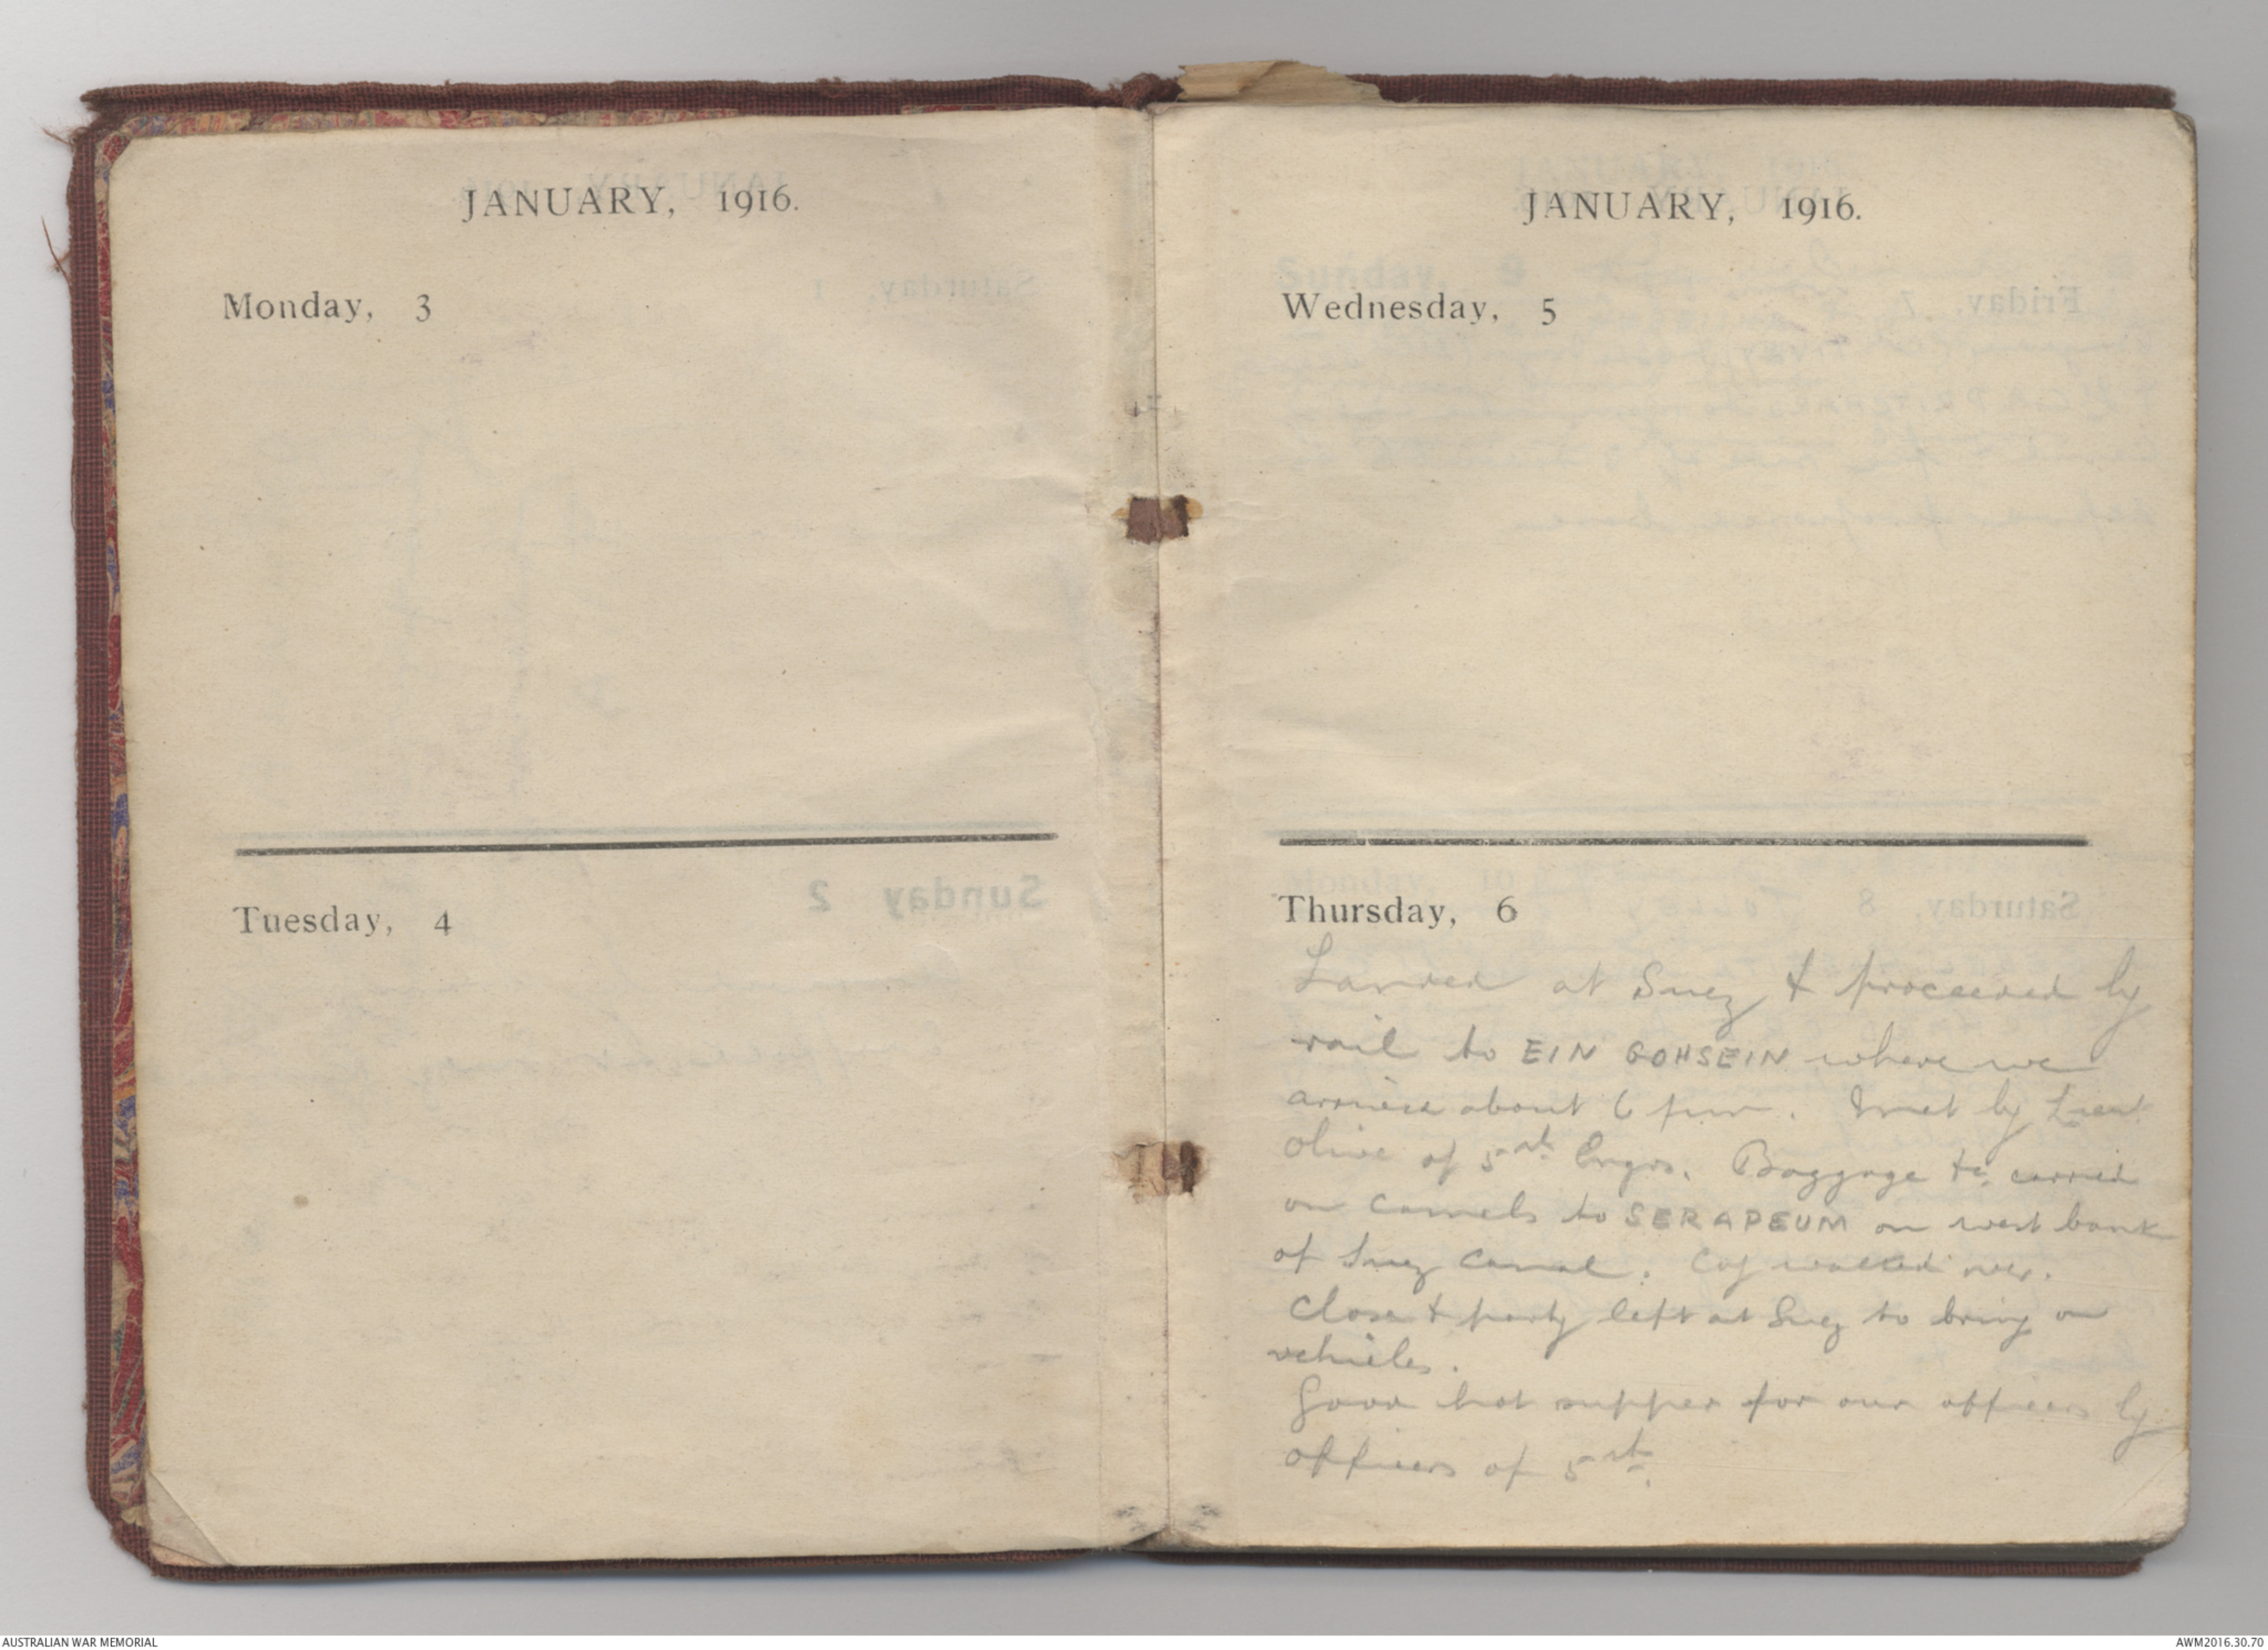 JANUARY, 1916.
Monday, 3
Tuesday, 4
JANUARY, 1916.
Wednesday, 5
Thursday, 6
Landed at Suez & proceeded by
rail to EIN GOHSEIN where we
arrived about 6 pm. met by Lieut
Olive of 5th Engrs. Baggage &c. carried
on camels to SERAPEUM on west bank
of Suez Canal. Coy walked over.
Close & party left at Suez to bring on
vehicles.
Good hot supper for our officers by
officers of 5th.
AUSTRALIAN WAR MEMORIAL
AWM2016.30.70